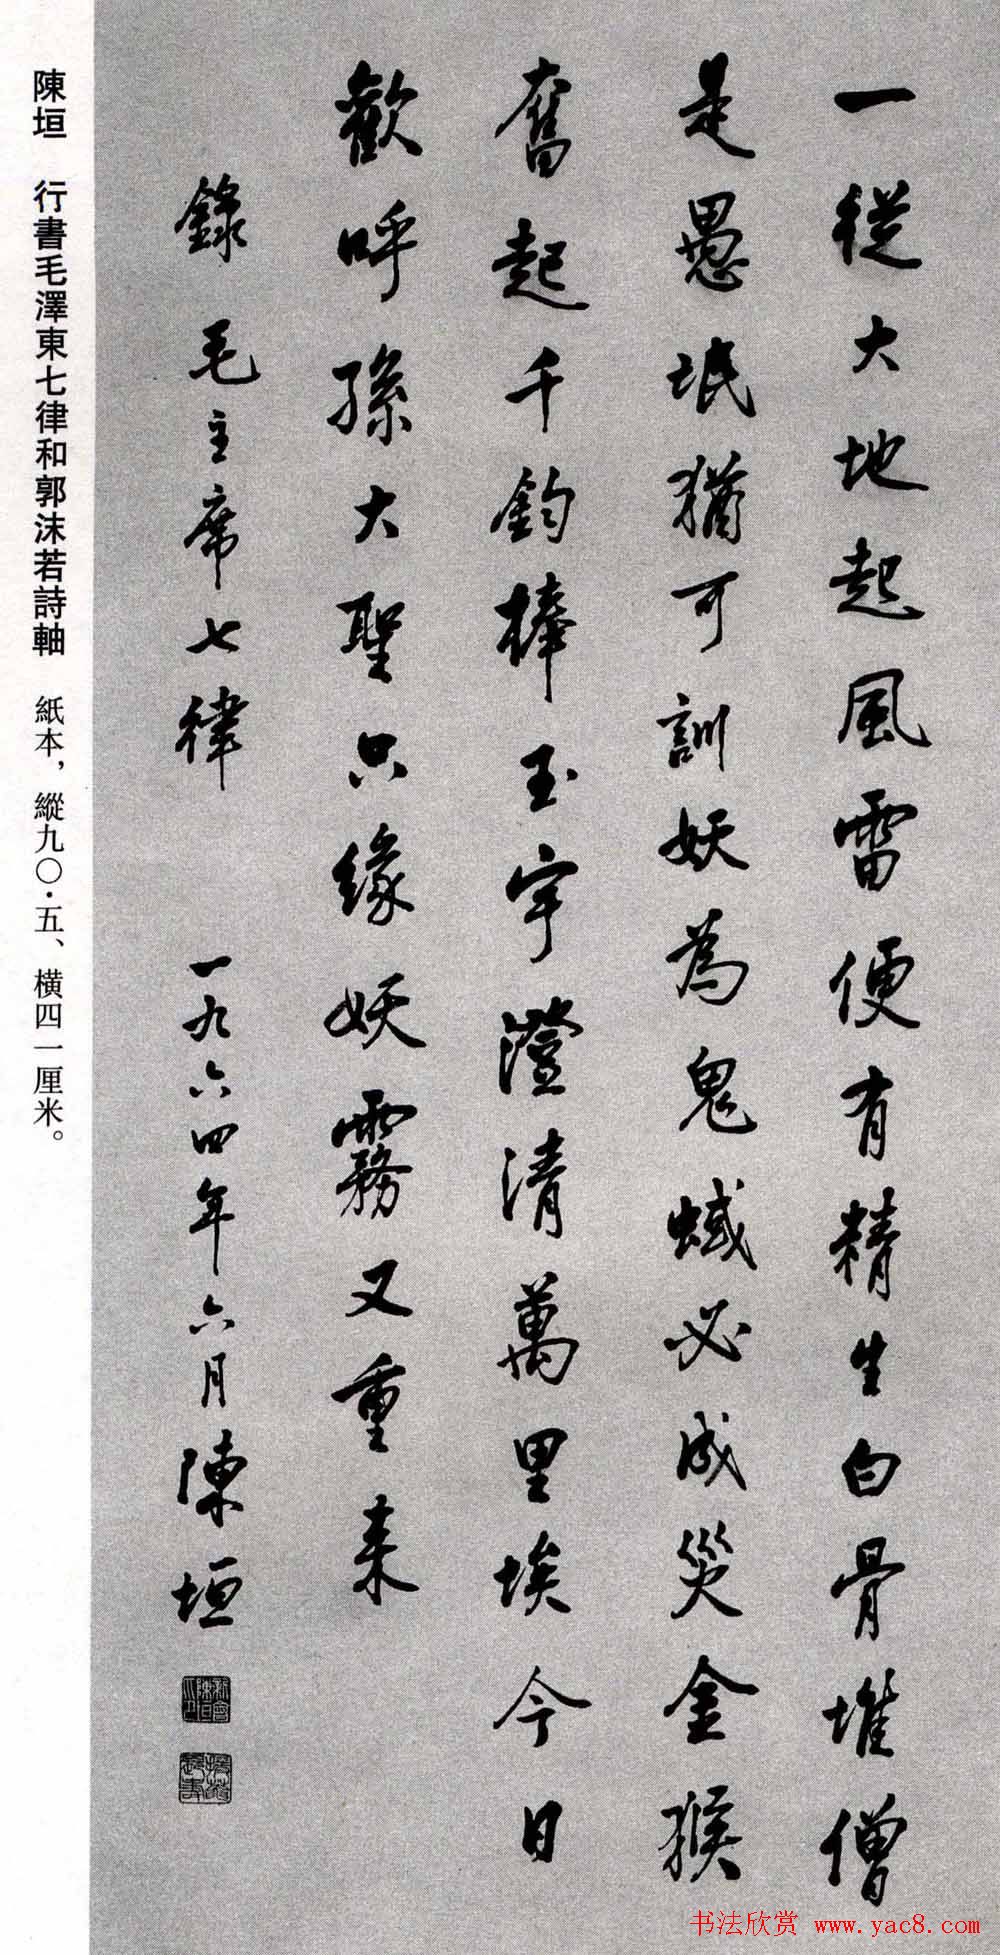 一從大地起風雷便有精生白骨堆僧
是愚氓猶可訓妖為鬼蜮必成災金猴
奮起千鈞棒玉宇澄清萬里埃今日
歡呼孫大聖只緣妖霧又重來
錄毛主席七律 一九六四年六月陳垣
陳垣 行書毛澤東七律和郭沫若詩軸 紙本，縱九〇·五、橫四一厘米。
书法欣赏 www.yac8.com